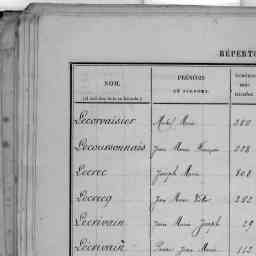 RÉPERTO
NOM.
PRÉNOMS
OU SURNOMS.
Lecorvaisier Marie 280
Lecoursonnais Jean Marie François 228
Lecrec Joseph Marie 808
Lecrecq Jean Marie 202
Lecrivain Jean Marie Joseph 29
Lécrivain Pierre Jean Marie 112